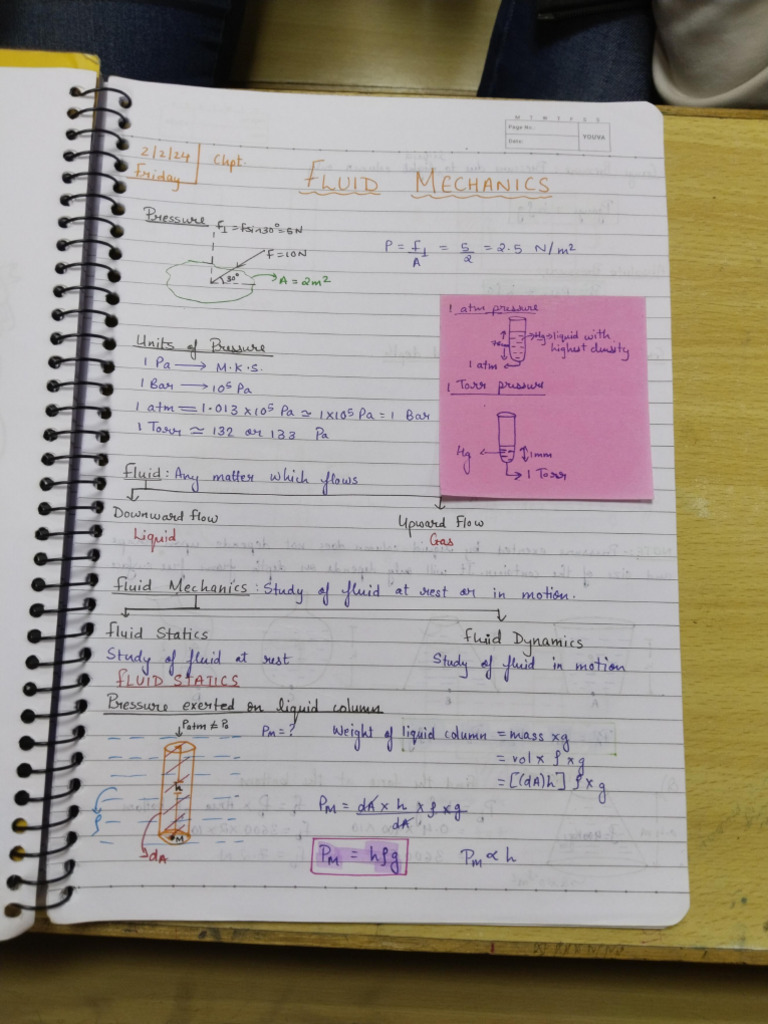 M T W T F S S
Page No.:
YOUVA
Date:
2/2/24
Friday
Chpt.
FLUID MECHANICS
Pressure
F⊥ = Fsin30° = 5N
F = 10N
30°
A = 2m²
P = F⊥/A = 5/2 = 2.5 N/m²
1 atm pressure
Hg→liquid with
highest density
1 atm
1 Torr pressure
Hg
1mm
1 Torr
Units of Pressure
1 Pa → M.K.S.
1 Bar → 10⁵ Pa
1 atm = 1.013 × 10⁵ Pa ≃ 1×10⁵ Pa = 1 Bar
1 Torr ≃ 132 or 133 Pa
Fluid : Any matter which flows
Downward flow
Upward Flow
Liquid
Gas
Fluid Mechanics : Study of fluid at rest or in motion.
Fluid Statics
Fluid Dynamics
Study of fluid at rest
Study of fluid in motion
FLUID STATICS
Pressure exerted on liquid column
Patm ≠ P₀
PM = ?
Weight of liquid column = mass × g
= vol × ρ × g
= [(dA)h] ρ × g
h
ρ
M
dA
PM = dA × h × ρ × g / dA
PM = hρg
PM ∝ h